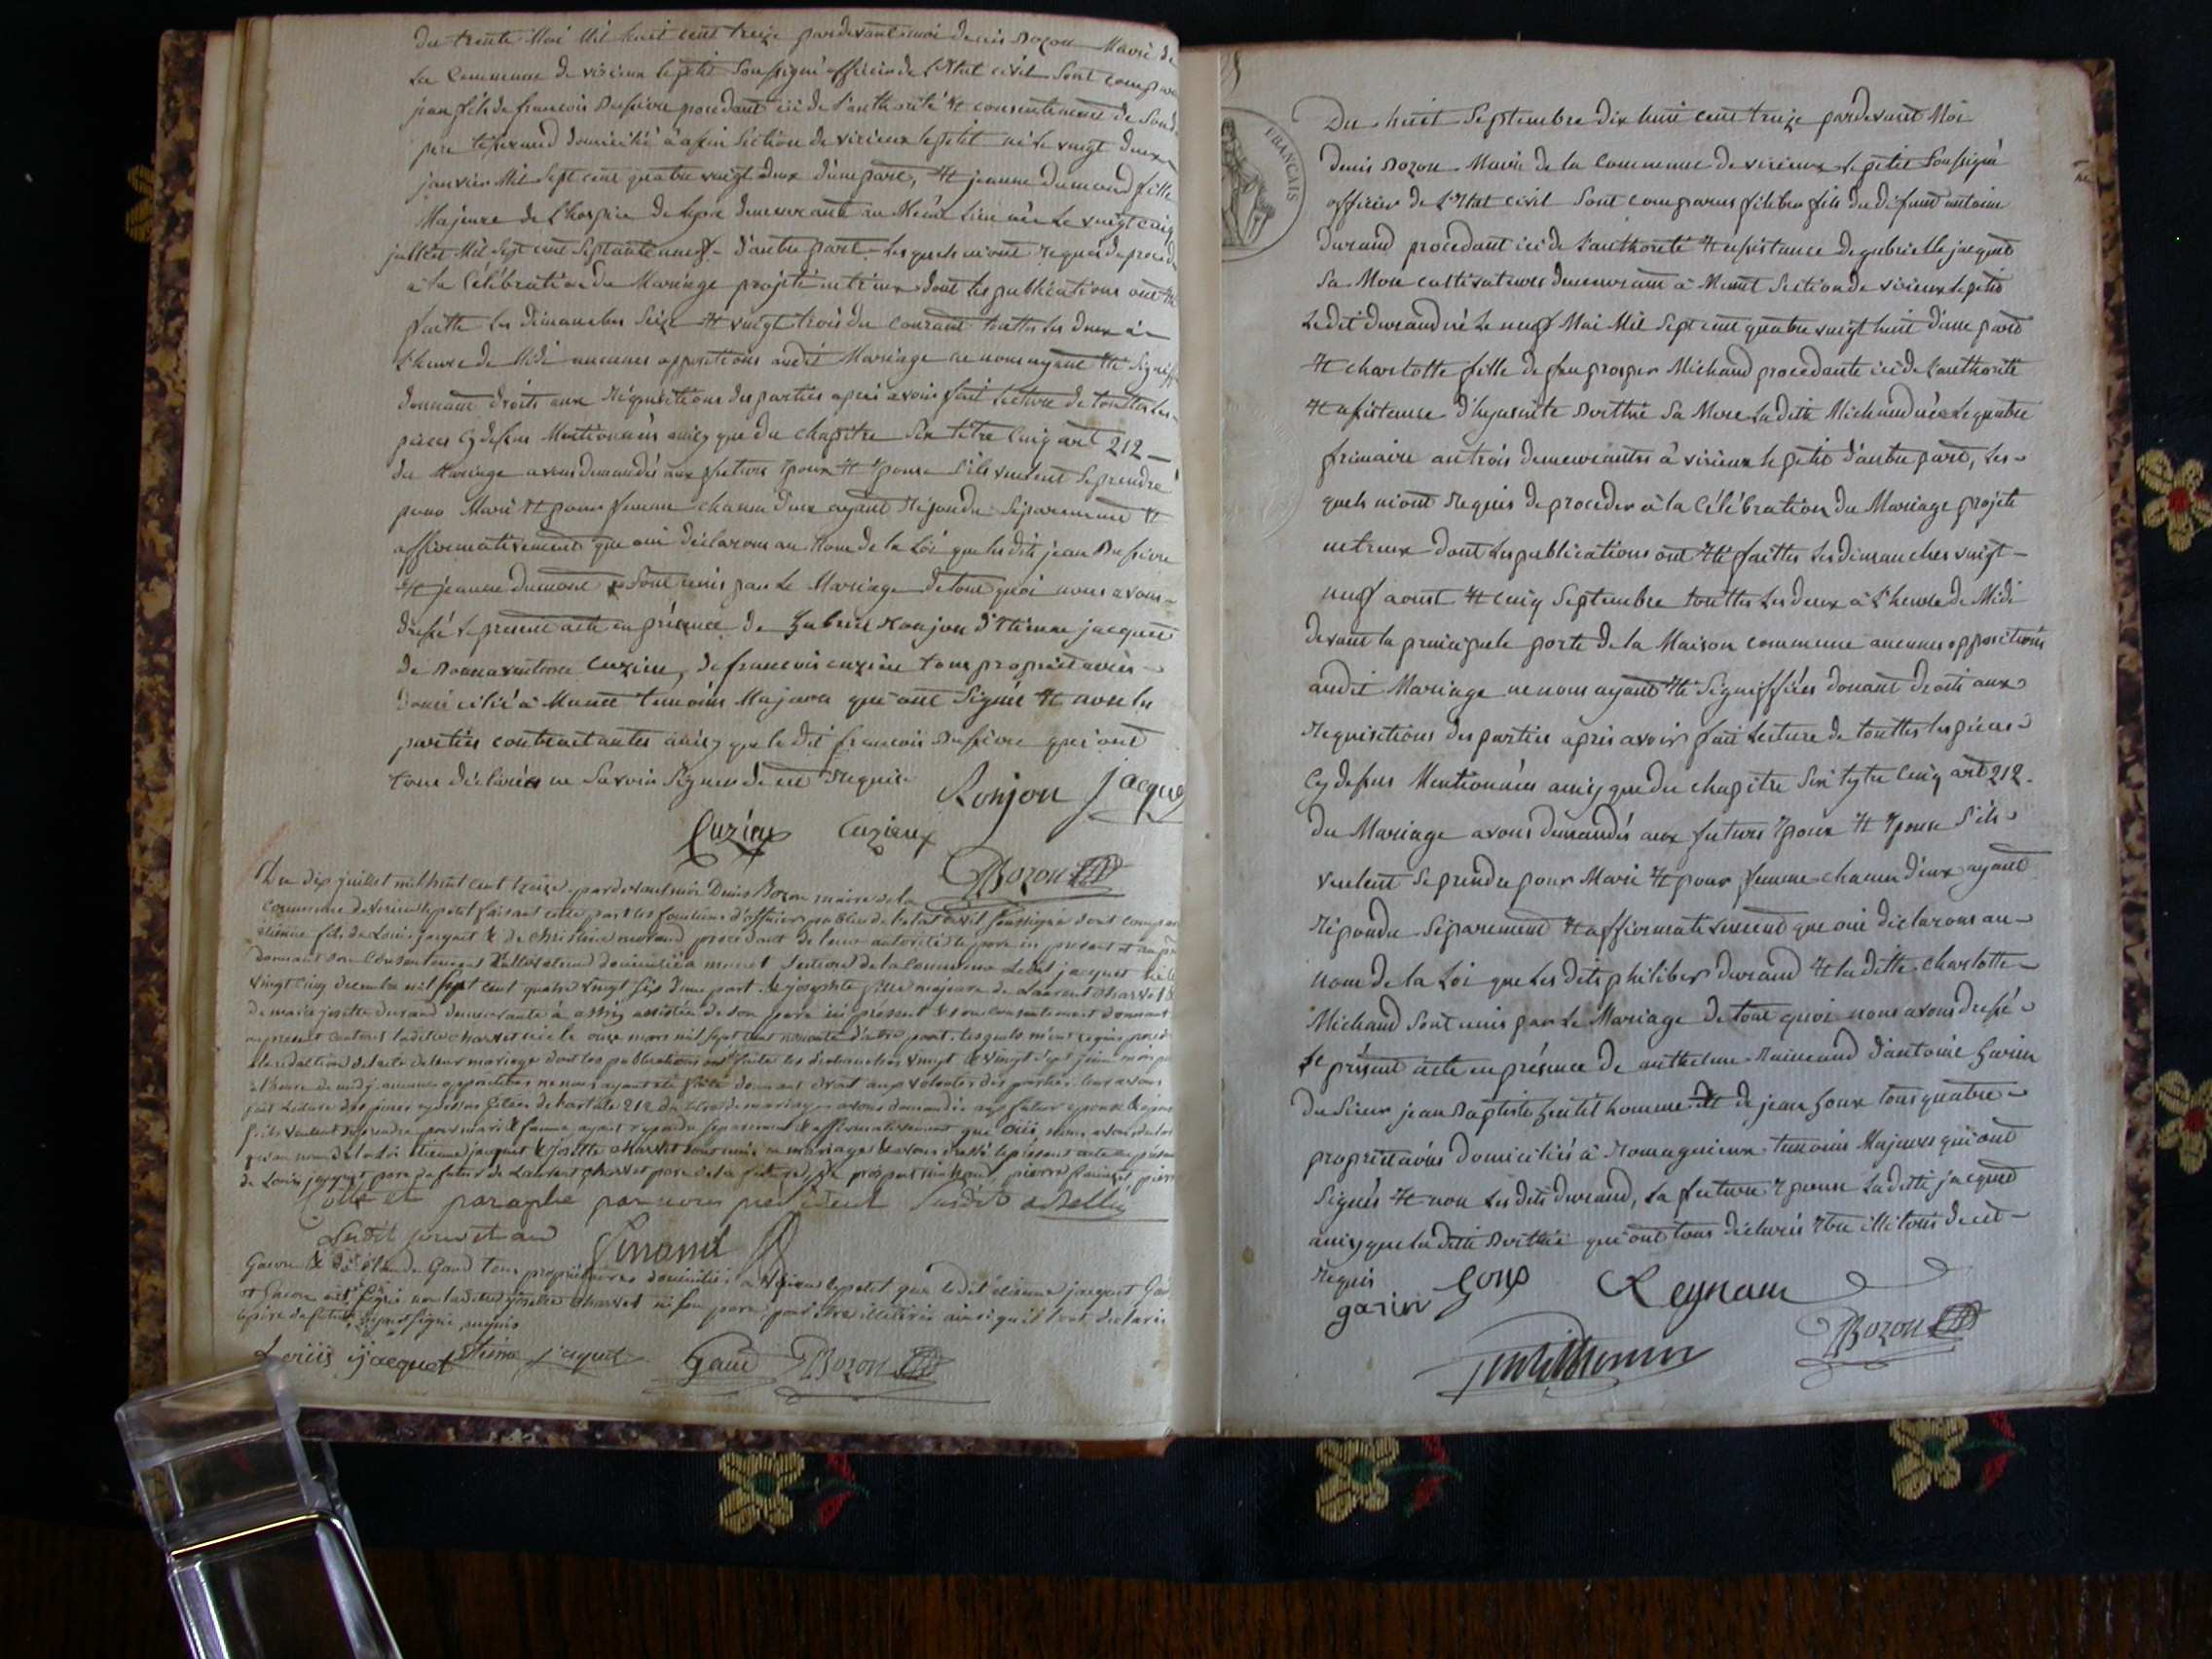 Du trente Mai Mil huit cent treize pardevant moi denis Bozon Maire de
La Commune de virieux le petit Soussigné officier de l'Etat civil Sont compar
jean fils de francois Bussiere procedant ici de l'authorité Et consentement de Sond
pere tisserand domicilié à Section de virieux le petit né le vingt deux
janvier Mil Sept cent quatre vingt deux d'une part, Et jeanne dumond fille
Majeure de L'hospice de demeurante au Même Lieu née Le vingt cinq
juillet Mil Sept cent Septante neuf d'autre part Lesquels m'ont Requis de proced
à la Célébration du Mariage projeté entr'eux dont les publications ont Eté
faitte les dimanches Seize Et vingt trois du Courant touttes les deux à
L'heure de Midi aucunes oppositions audit Mariage ne nous ayant Eté Signiff
donnant droits aux Réquisitions des parties apres avoir fait Lecture de touttes les
pieces Cy dessus Mentionnées ainsy que du chapitre Six titre Cinq art 212
du Mariage avons demandés aux futurs Epoux Et Epouse S'ils veulent Se prendre
pour Mari Et pour femme chacun d'eux ayant Répondu Séparement Et
affirmativement que oui déclarons au Nom de la Loi que les dits jean Bussiere
Et jeanne dumond Sont unis par Le Mariage de tout quoi nous avons
dressé Le present acte en présence de Gabriel Ronjon d'Etienne jacquet
de Bonnaventure Cuzieu, de francois cuzieu tous propriétaires
domicilié à Munet temoins Majeurs qui ont Signés Et non les
parties contractantes ainsy que le dit francois Bussiere qui ont
tous déclarés ne Savoir Signer de ce Requis
Ronjon jacque
Cuzieu Cuzieux
DBozon
Du dix juillet mil huit cent treize pardevant moi Denis Bozon maire de la
commune de virieu le petit faisant cette part les fonctions d'officier public de l'etat civil soussigné sont compar
etienne fils de Louis jacquet & de christine morand procedant de leur autorité le pere ici present et
donnant son consentement domicilié a munet section de la Commune Ledit jacquet né le
vingt cinq decembre mil sept cent quatre vingt six d'une part & josephte fille majeure de Laurent charvet &
de marie josette durand demeurante à assin assistée de son pere ici présent & son consentement donnant
au present contrat ladite charvet née le onze mars mil sept cent nonante d'autre part. lesquels m'ont requis proced
a la redaction de l'acte de leur mariage dont les publications ont été faites les dimanches vingt & vingt sept juin
à l'heure de midy aucune opposition ne nous ayant été faite donnant droit aux volontés des parties. leur avons
fait Lecture des pieces cy dessus de l'article 212 du titre de mariage avons demandé aux futur epoux & epouse
s'ils veulent se prendre pour mari & femme ayant repondu separement & affirmativement que oüi, nous avons
qu'au nom de la loi etienne jacquet & josette charvet sont unis en mariage & avons dressé le présent acte en présen
de Louis jacquet pere du futur de Laurent charvet pere de la future de prosper pierre pier
Cotté et paraphé par nous president Susdit a Belley
Ledit jour et an
Gavon & de claude Gaud tous propriétaires domiciliés a virieu le petit que ledit etienne jacquet Gau
et Gavon ont signé non ladite josette charvet ni son pere pour être illettrés ainsi qu'il l'ont déclaré
le pere du futur signé requis
Loüis jacquet Etiene jaquet Gaud DBozon
FRANCAIS
Du huit Septembre dix huit cent treize pardevant Moi
denis Bozon Maire de la Commune de virieux le petit Soussigné
officier de L'Etat civil Sont comparus filibert fils du défunt antoine
durand procedant ici de l'authorité Et assistance de gabrielle jacquet
Sa Mere cultivateurs demeurant à Munet Section de virieux le petit
Ledit durand né Le neuf Mai Mil Sept cent quatre vingt huit d'une part
Et charlotte fille de feu prosper Michaud procedante ici de l'authorité
Et assistance d'hyacinte Berthié Sa Mere Ladite Michaud née Le quatre
frimaire an trois demeurantes à virieux le petit d'autre part, Les
quels m'ont Requis de proceder à la Célébration du Mariage projeté
entreux dont Les publications ont Eté faittes Les dimanches vingt
neuf aoust Et cinq Septembre touttes Les deux à L'heure de Midi
devant la principale porte de la Maison commune aucunes oppositions
audit Mariage ne nous ayant Eté Signiffiées donnant droits aux
Requisitions des parties après avoir fait Lecture de touttes les pieces
Cy dessus Mentionnées ainsy que du chapitre Six tytre Cinq art 212
du Mariage avons demandés aux futurs Epoux Et Epouse S'ils
veulent Se prendre pour Mari Et pour femme chacun d'eux ayant
Répondu Séparement Et affirmativement que oui déclarons au
nom de la Loi que Les dits philibert durand Et la ditte charlotte
Michaud Sont unis par Le Mariage de tout quoi nous avons dressé
Le présent acte en présence de anthelme Rainaud d'antoine Garin
du Sieur jean Baptiste Gentil homme Et de jean Goux tous quatre
propriétaires domiciliés à Romagnieux temoins Majeurs qui ont
Signés Et non Les dits durand, La future Epouse Laditte jacquet
ainsy que la ditte Berthié qui ont tous déclarés Etre illitérés de cet
Requis
garin Goux Reynaud
DBozon